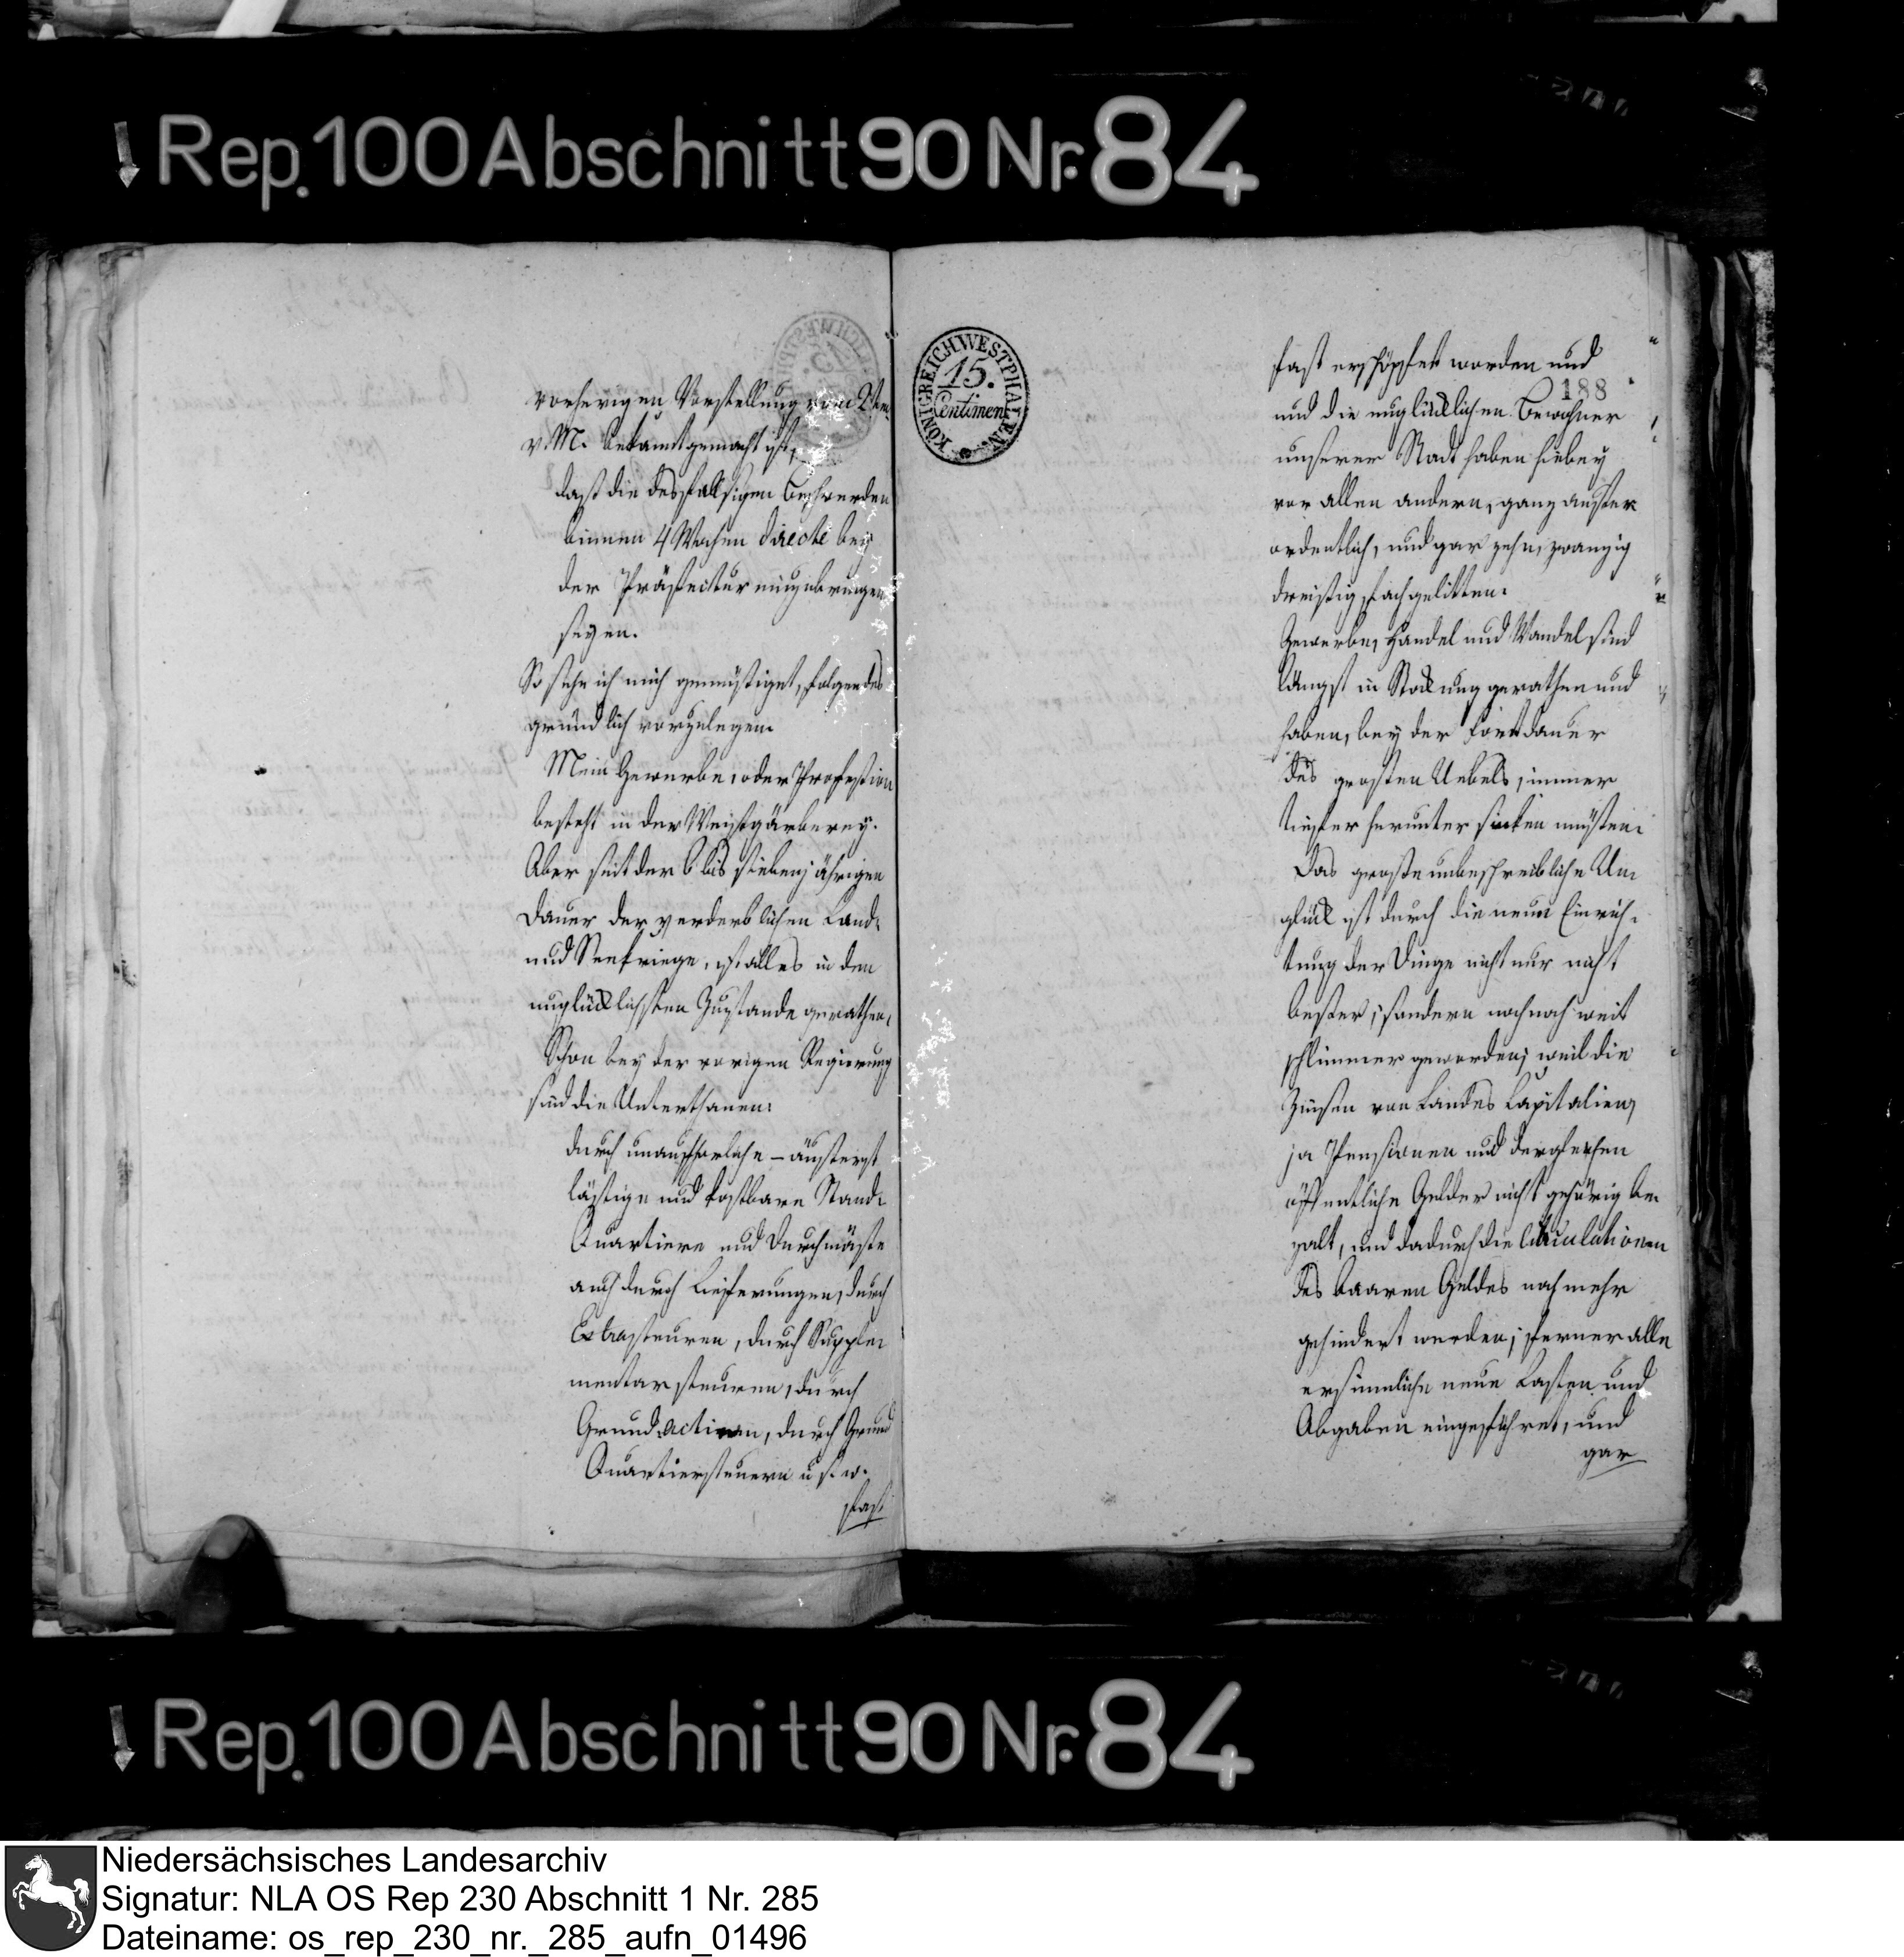 Rep. 100 Abschnitt 90 Nr. 84
vorherigen Vorstellung vom 2ten
v. M. bekamt gemacht ist,
daß die desfallsigen Beschwerden
binnen 4 Wochen directe bey
der Präfectur einzubringen
seyen.
So sehe ich mich gemüßiget, folgendes
gründlich vorzulegen.
Mein Gewerbe, oder Profeßion
besteht in der Weißgärberey.
Aber seit der 6 bis siebenjährigen
Dauer der verderblichen Land-
und Seekriege, ist alles in den
unglücklichsten Zustande gerathen.
Schon bey der vorigen Regierung
sind die Unterthanen:
durch unaufhorliche – äußerst
lästige und kostbare Stand-
Quartiere und Durchmäste
auch durch Lieferungen, durch
Extrasteuren, durch Supple-
mentar steuren, durch
Grund actien, durch Grund
Quartiersteuern u. s. w.
fast
KÖNIGREICH WESTPHALEN
15.
Centimen
188
fast erschöpfet worden und
und die unglücklichen Bewohner
unserer Stadt haben hiebey
vor allen andern, ganz außer
ordentlich, und gar zehn, zwanzig
dreißig fach gelitten.
Gewerbe, Handel und Wandel sind
längst in Stockung gerathen und
haben, bey der Fortdauer
des großen Uebels, immer
tiefer herunter sinken müßen.
Das große unbeschreibliche Un-
glück ist durch die neue Einrich-
tung der Dinge nicht nur nicht
beßer, sondern noch noch weit
schlimmer geworden; weil die
Zinsen von Landes Capitalien,
ja Pensionen und dergleichen
öffentliche Gelder nicht gehörig be-
zalt, und dadurch die Circulationen
des baaren Geldes noch mehr
gehindert werden; ferner alle
ersinnliche neue Lasten und
Abgaben eingeführet, und
gar
Rep. 100 Abschnitt 90 Nr. 84
Niedersächsisches Landesarchiv
Signatur: NLA OS Rep 230 Abschnitt 1 Nr. 285
Dateiname: os_rep_230_nr._285_aufn_01496